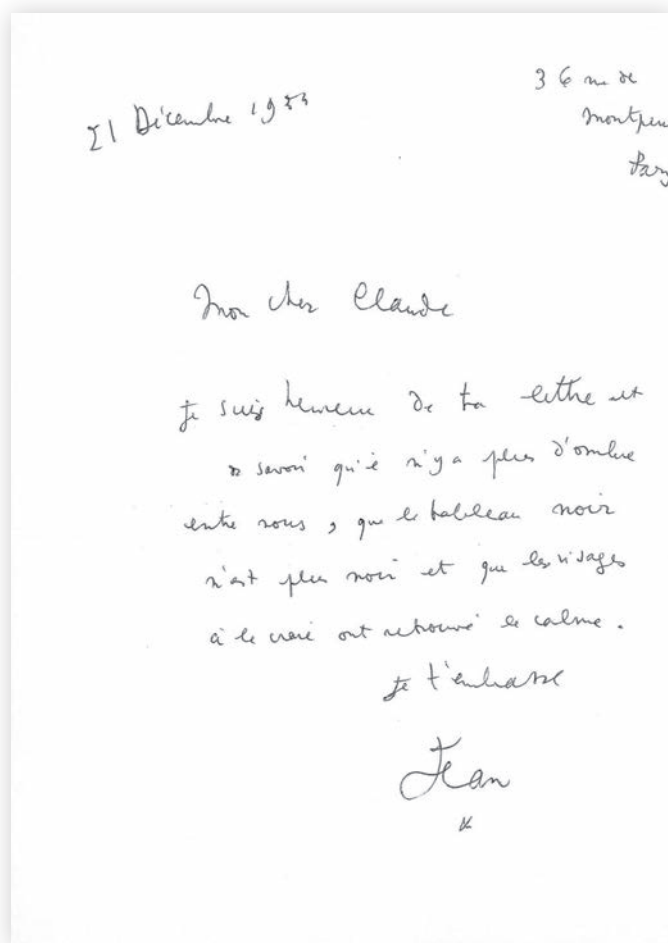 36 rue de
21 Décembre 1953
Montpen
Pary
Mon cher Claude
Je suis heureux de ta lettre et
de savoir qu'il n'y a plus d'ombre
entre nous, que le tableau noir
n'est plus noir et que les visages
à la craie ont retrouvé le calme.
Je t'embrasse
Jean